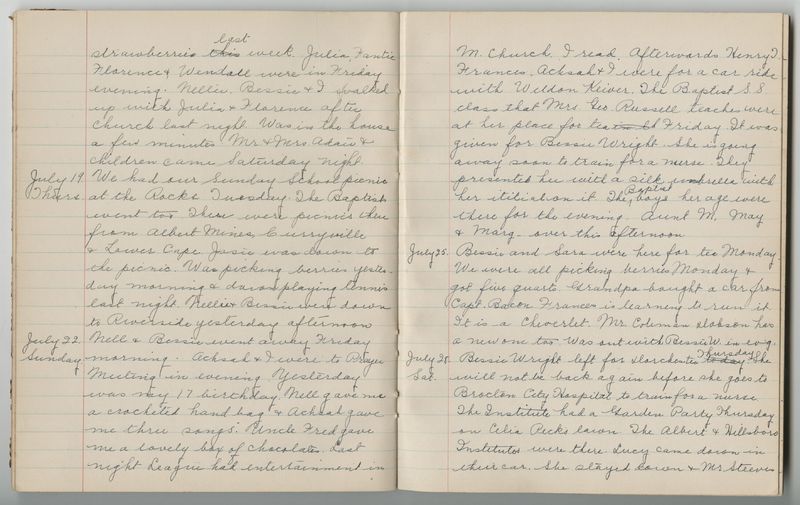 last
strawberries this week. Julia, Fantie
Florence & Wendall were in Friday
evening. Nellie, Bessie & I walked
up with Julia & Florence after
church last night. Was in the house
a few minutes Mr & Mrs Adair &
children came Saturday night.
July 19 We had our Sunday School picnic
Thurs. at the Rocks Tuesday. The Baptist
went too There were picnics there
from Albert Mines, Curryville
& Lower Cape Josie was down to
the picnic. Was picking berries yester-
day morning & down playing tennis
last night. Nellie & Bessie were down
to Riverside yesterday afternoon
July 22 Nell & Bessie went away Friday
Sunday morning. Achsah & I were to Prayer
Meeting in evening Yesterday
was my 17 birthday. Nell gave me
a crocheted hand bag & Achsah gave
me three songs. Uncle Fred gave
me a lovely box of chocolates. Last
night League had entertainment in
M. Church. I read. Afterwards Henry T.
Frances, Achsah & I were for a car ride
with Weldon Keiver. The Baptist S.S.
class that Mrs. Geo. Russell teaches were
at her place for tea Friday. It was
given for Bessie Wright. She is going
away soon to train for a nurse. They
presented her with a silk umbrella with
her initial on it. The Baptist boys her age were
there for the evening. Aunt M, May
& Marg. over this afternoon
July 25. Bessie and Sara were here for tea Monday.
We were all picking berries Monday &
got five quarts. Grandpa bought a car from
Capt. Bacon Frances is learning to run it
It is a Cheverlet. Mr. Coleman Dobson has
a new one too. Was out with Bessie W. in
July 28. Bessie Wright left for Dorchester Thursday today She
Sat. will not be back again before she goes to
Brocton City Hospital to train for a nurse.
The Institute had a Garden Party Thursday
on Celia Pecks lawn. The Albert & Hillsboro
Institutes were there Lucy came down in
their car. She stayed down & Mr Steeves